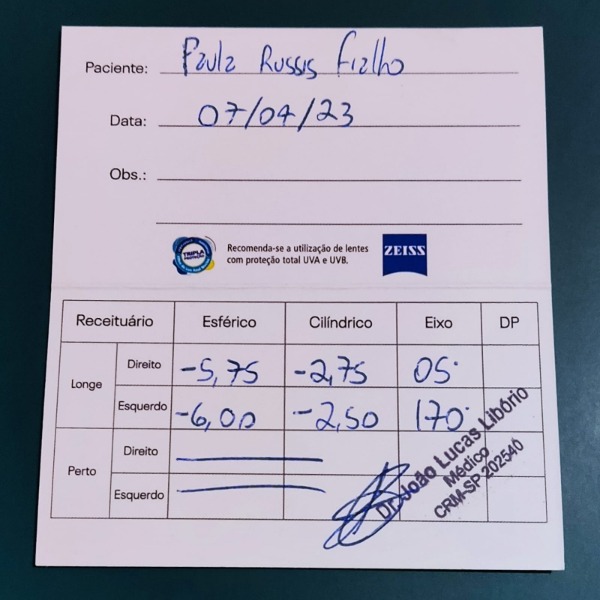 Paciente: Paula Russis Fialho
Data: 07/04/23
Obs.:
TRIPLA
Recomenda-se a utilização de lentes
com proteção total UVA e UVB.
ZEISS
Receituário Esférico Cilíndrico Eixo DP
Longe
Direito -5,75 -2,75 05°
Esquerdo -6,00 -2,50 170°
Perto
Direito
Esquerdo
Dr. João Lucas Libório
Médico
CRM-SP 202540